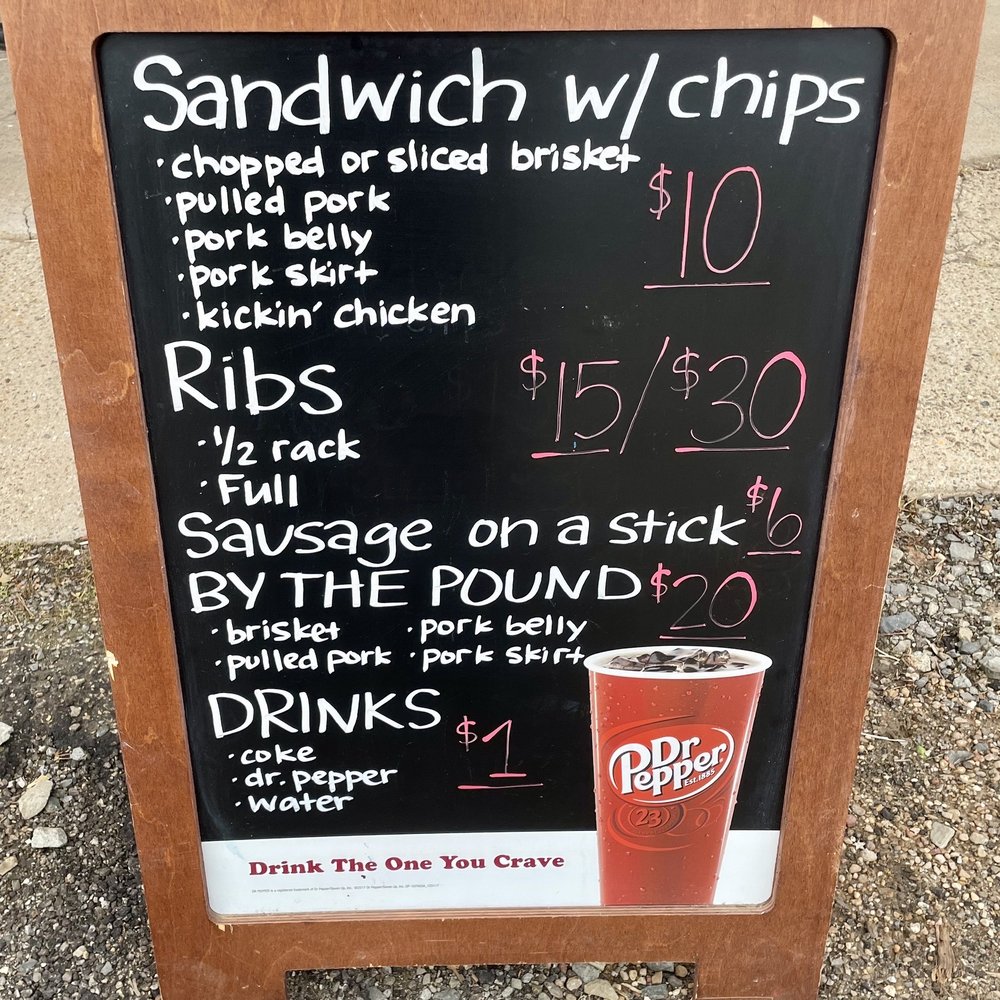 Sandwich w/ chips
· chopped or sliced brisket
$10
· pulled pork
· pork belly
· pork skirt
· kickin' chicken
Ribs $15/$30
· 1/2 rack
· Full
Sausage on a stick $6
BY THE POUND $20
· brisket · pork belly
· pulled pork · pork skirt
DRINKS $1
· coke
· dr. pepper
· water
Dr
Pepper
EST. 1885
23
Drink The One You Crave